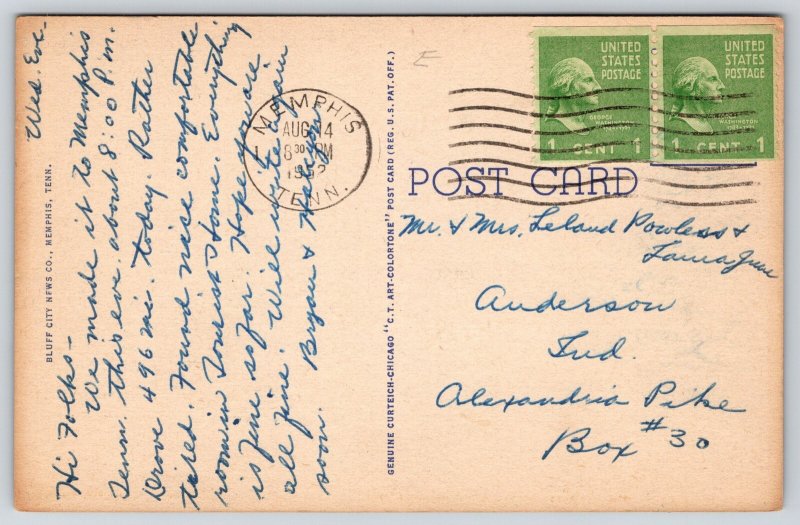 Wed. Eve-
Hi Folks-
We made it to Memphis
Tenn. this eve. about 8:00 P.m.
Drove 496 mi. today. Rather
tired. Found nice comfortable
room in Tourist Home. Everything
is fine so far. Hope you are
all fine. Will write again
soon. Bryan &
BLUFF CITY NEWS CO., MEMPHIS, TENN.
GENUINE CURTEICH-CHICAGO "C.T. ART-COLORTONE" POST CARD (REG. U.S. PAT. OFF.)
E
MEMPHIS
AUG 14
8 30 PM
1952
TENN.
1
UNITED
STATES
POSTAGE
GEORGE
WASHINGTON
1 CENT 1
UNITED
STATES
POSTAGE
GEORGE
WASHINGTON
1 CENT 1
POST CARD
Mr. & Mrs. Leland Powless &
Laura June
Anderson
Ind.
Alexandria Pike
Box #30